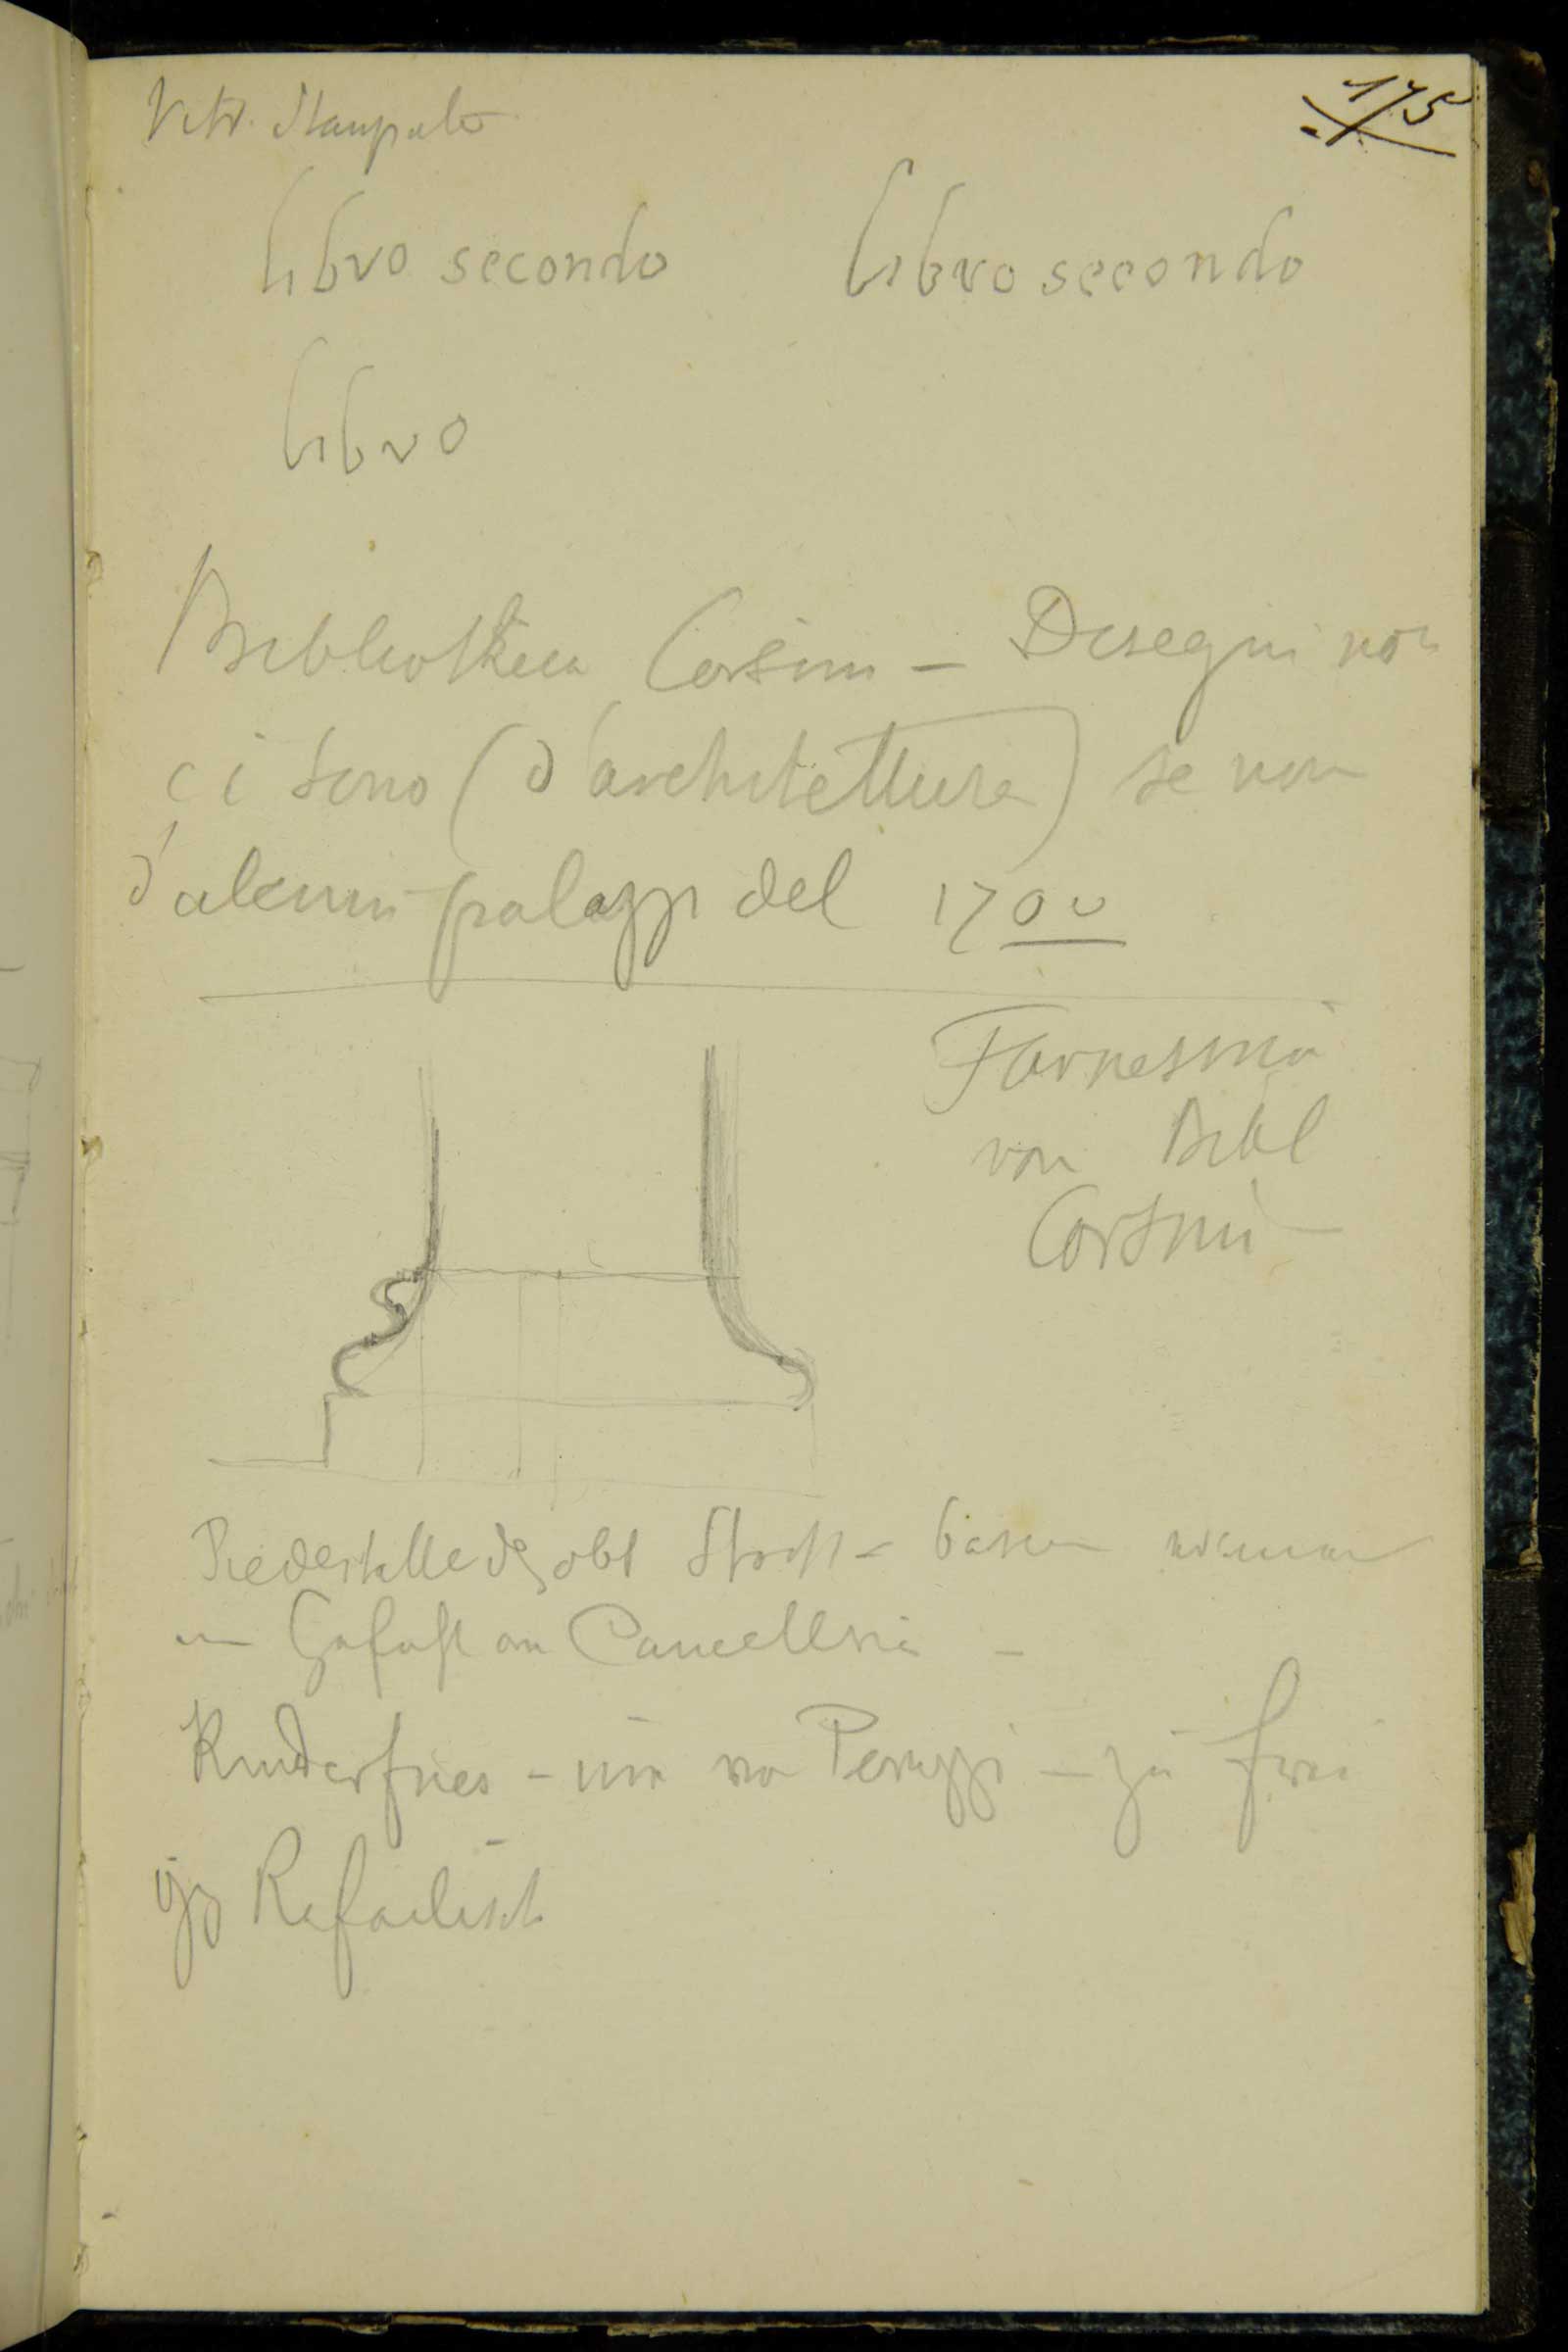 Vitr. stampato
175
libro secondo libro secondo
libro
Bibliotheca Corsini – Disegni non
ci sono (d'architettura) se non
d'alcuni palazzi del 1700
Farnesina
von Bibl
Corsini –
Piedestalle des obt Stock – basen
an Cancelleria –
Kinderfries – nie von Peruzzi – zu frei
Rafaelisch